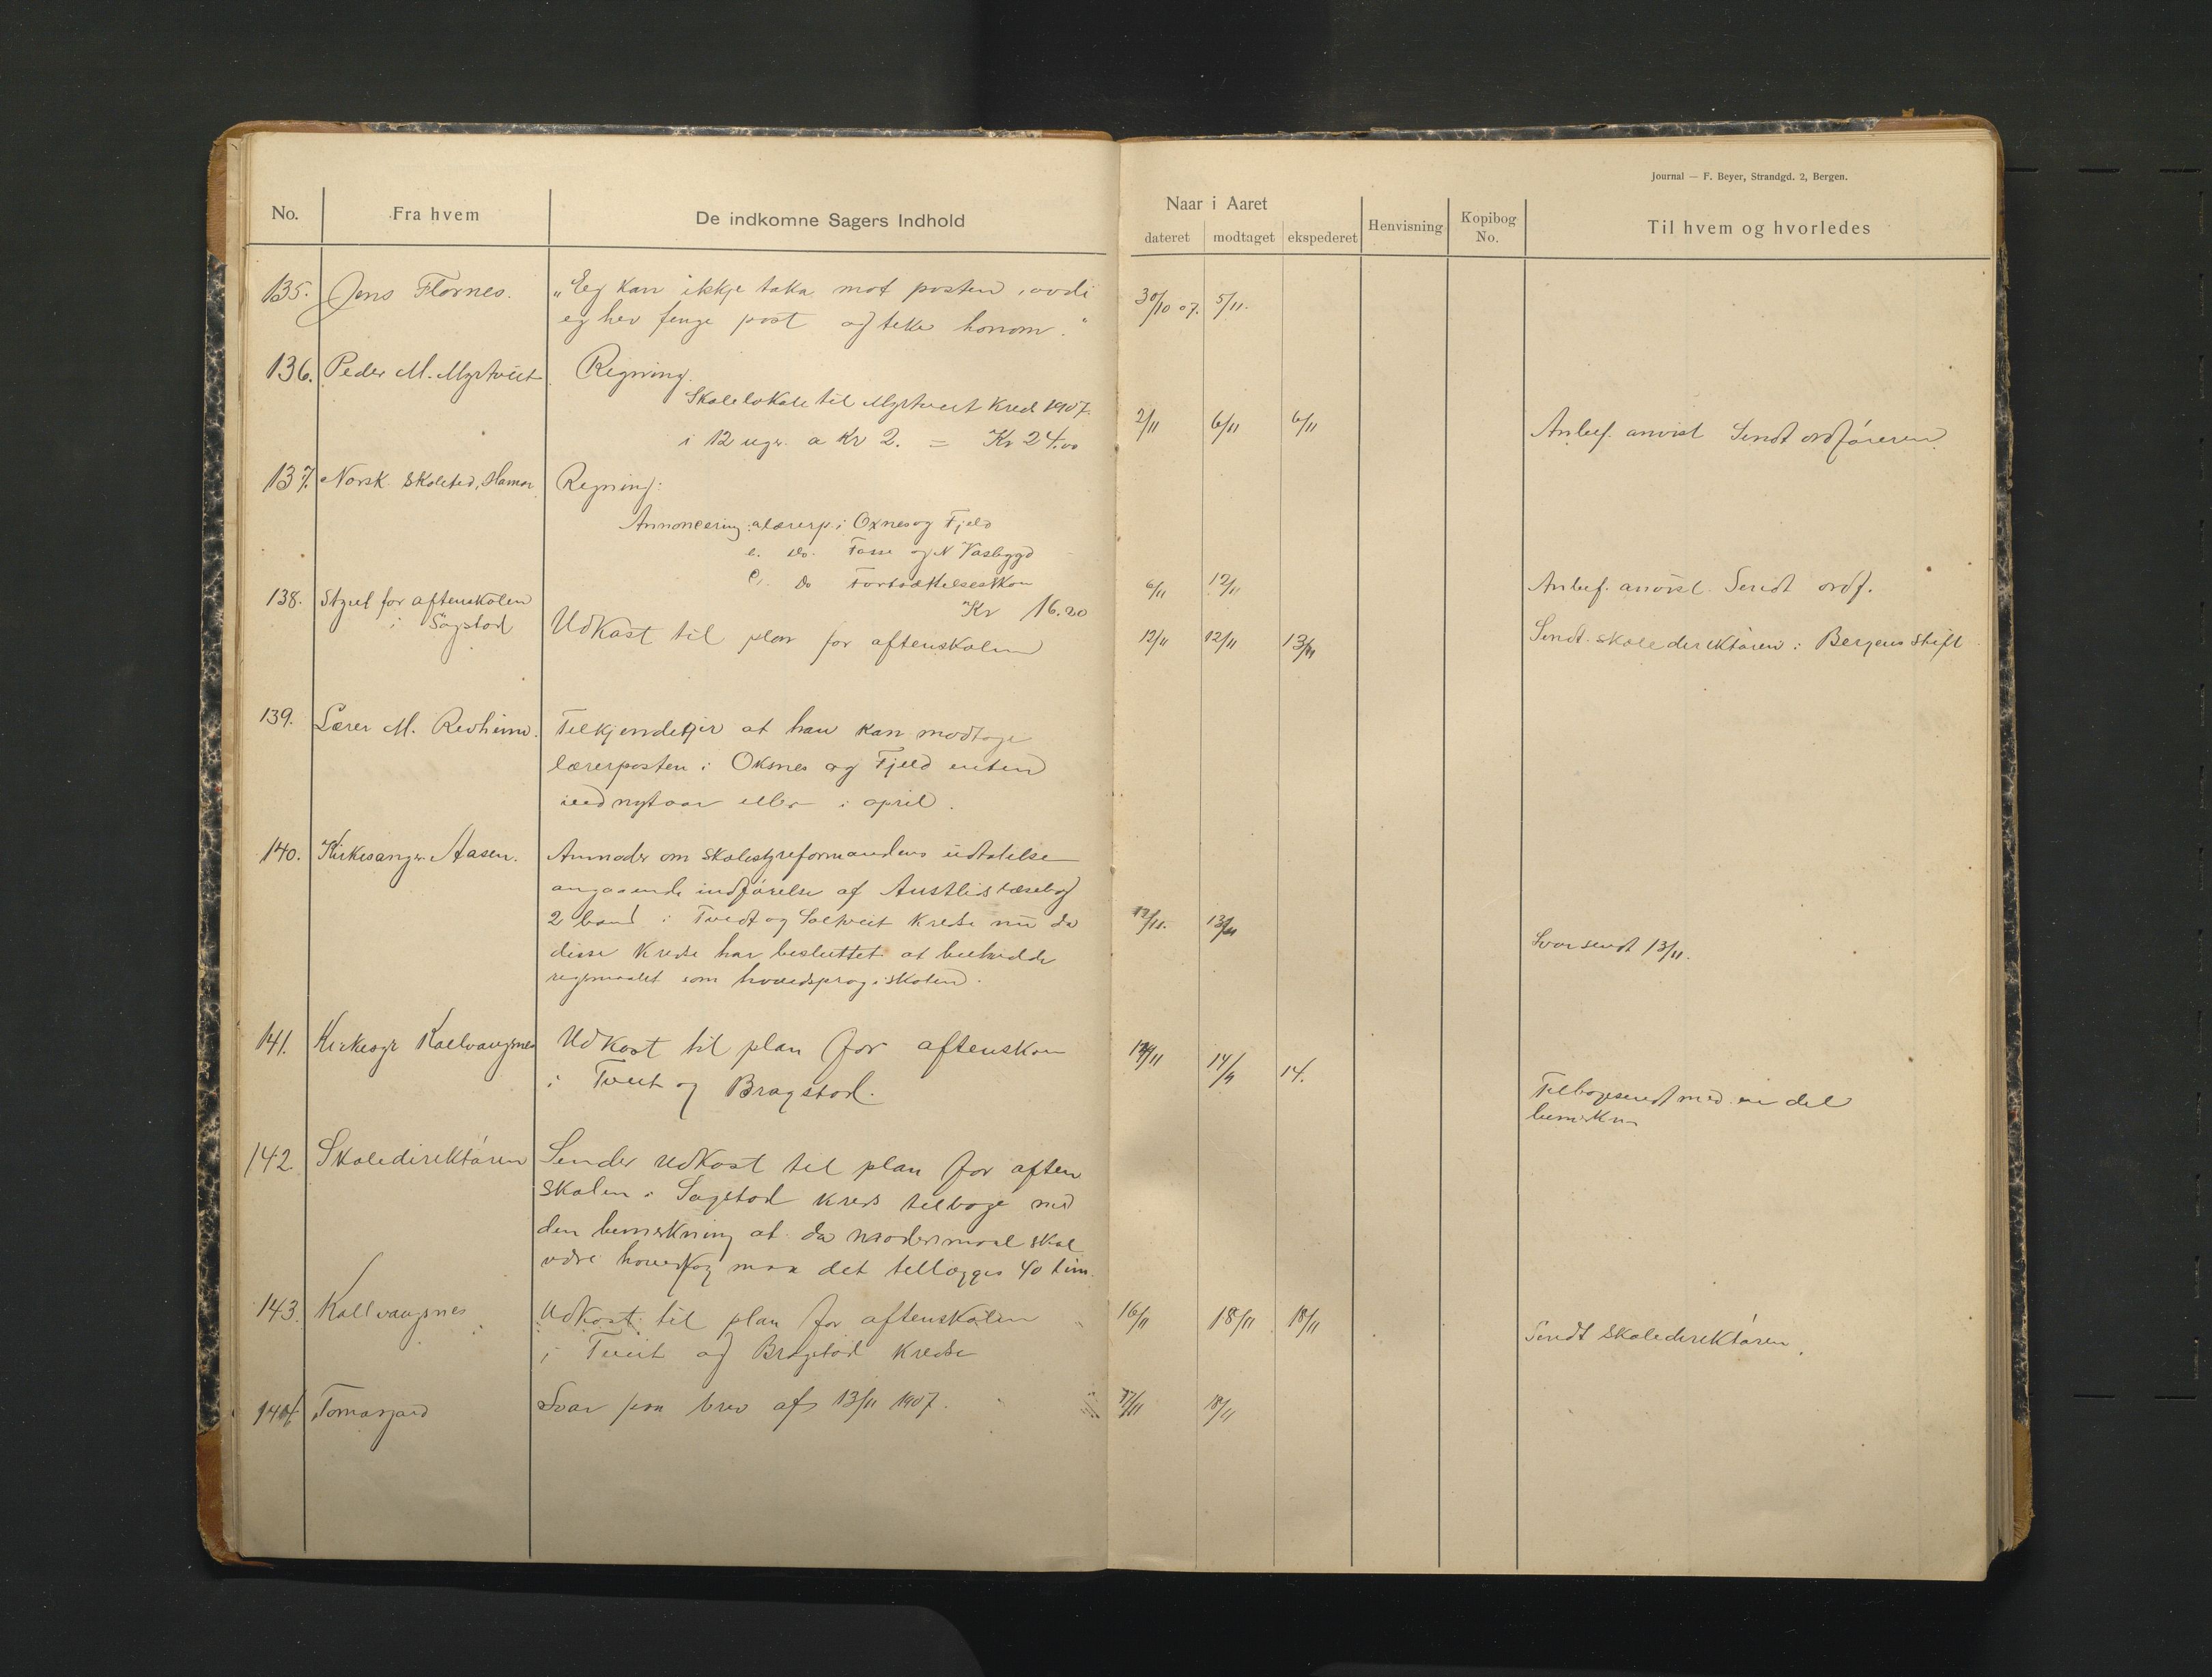 Journal — F. Beyer, Strandgd. 2, Bergen.
No. Fra hvem De indkomne Sagers Indhold Naar i Aaret Henvisning Kopibog No. Til hvem og hvorledes
dateret modtaget ekspederet
135. Jens Flornes. „Eg kan ikkje taka mot posten, avdi 30/10 07. 5/11.
eg hev fenge post og teke honom."
136. Peder M. Myrtveit Regning.
Skolelokale til Myrtveit Kreds 1907.
i 12 uger a Kr 2. = Kr 24.00 2/11 6/11 6/11 Anbef. anvist Sendt ordføreren.
137. Norsk Skoletid, Hamar Regning:
Annoncering: a lærerp. i Oxnes og Fjeld
Do. Fosse og N Vasbygd
Do Fortsættelsesskon
Kr 16.20 6/11 12/11 Anbef. anvist. Sendt ordf.
138. Styret for aftenskolen
i Søgstad
Udkast til plan for aftenskolen 12/11 12/11 13/11 Sendt skoledirektøren i Bergens Stift
139. Lærer M. Revheim. Tilkjendegir at han kan modtage
lærerposten i Oksnes og Fjeld enten
ved nytaar eller i april.
140. Kirkesanger Aasen. Anmoder om skolestyreformandens udtalelse
angaaende indførelse af Austlis læsebog
2 band i Tvedt og Soltveit Kredse nu da 12/11. 13/11
disse Kredse har besluttet at beholde Svar sendt 13/11.
rigsmaalet som hovedsprog i skolen.
141. Kirkesgr Kallvaagnes Udkast til plan for aftenskon
i Tveit og Bragstad. 14/11 14. Tilbagesendt med en del
bemerkn
142. Skoledirektøren Sender udkast til plan for aften
skolen i Søgstad kreds tilbage med
den bemerkning at da modersmaal skal
være hovedfag maa det tillægges 40 tim.
143. Kallvaagnes Udkast til plan for aftenskolen 16/11 18/11 18/11 Sendt Skoledirektøren.
i Tveit og Bragstad Kredse
144. Tomasgard Svar paa brev af 13/11 1907. 17/11 18/11